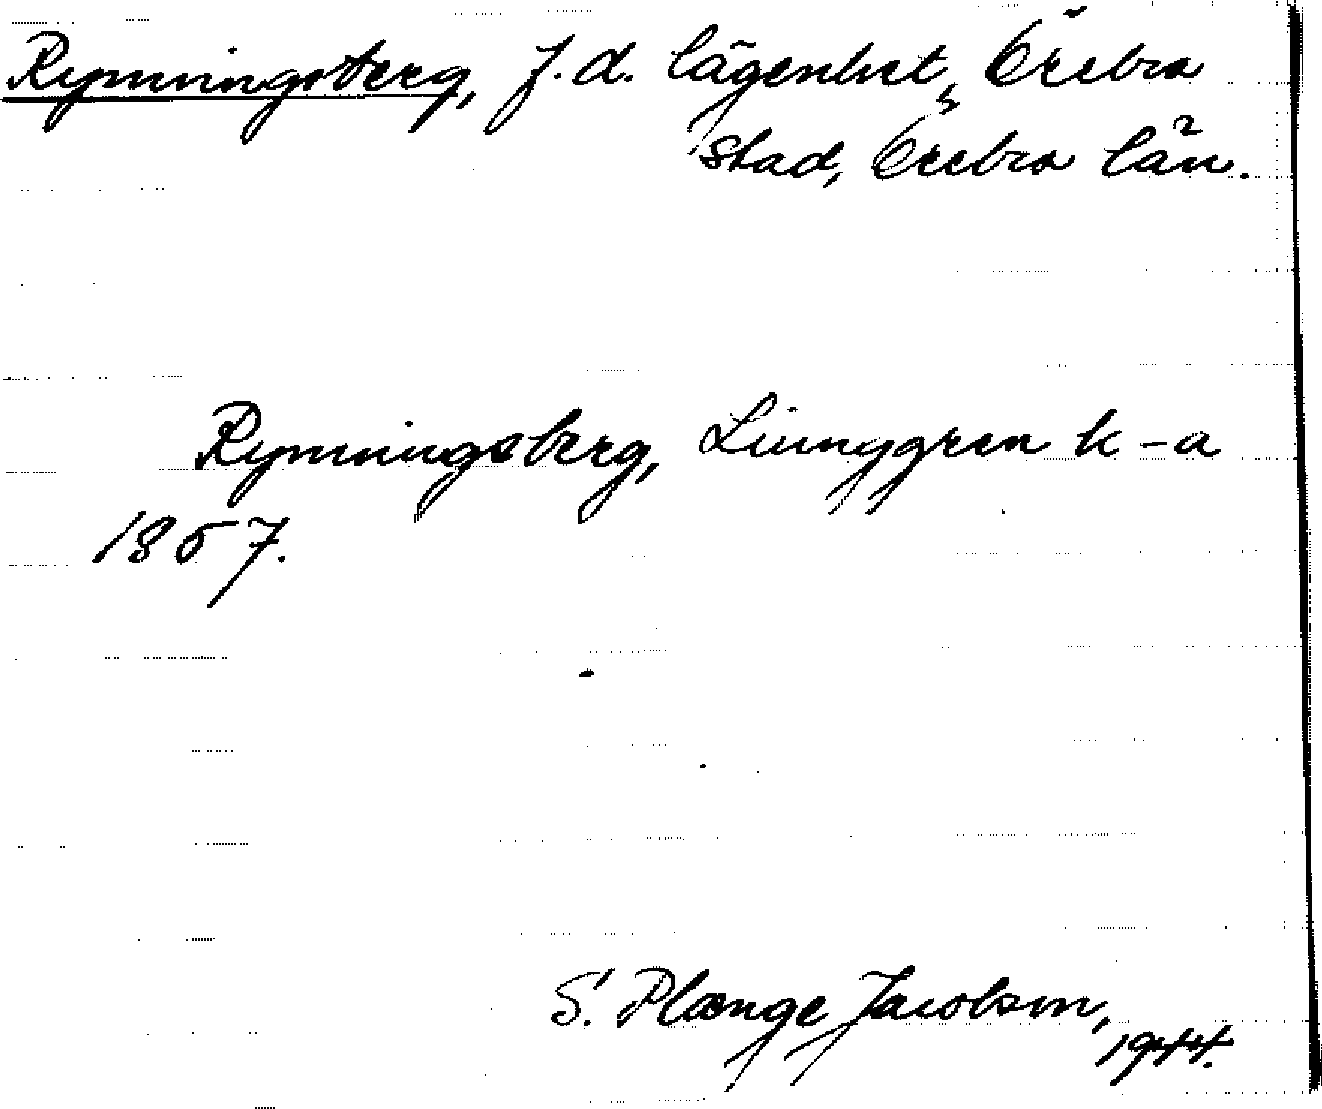 Rynningsberg, f.d. lägenhet, Örebro
stad, Örebro län.
Rynningsberg, Ljunggren k-a
1857.
S. Plænge Jacobson,
1944.